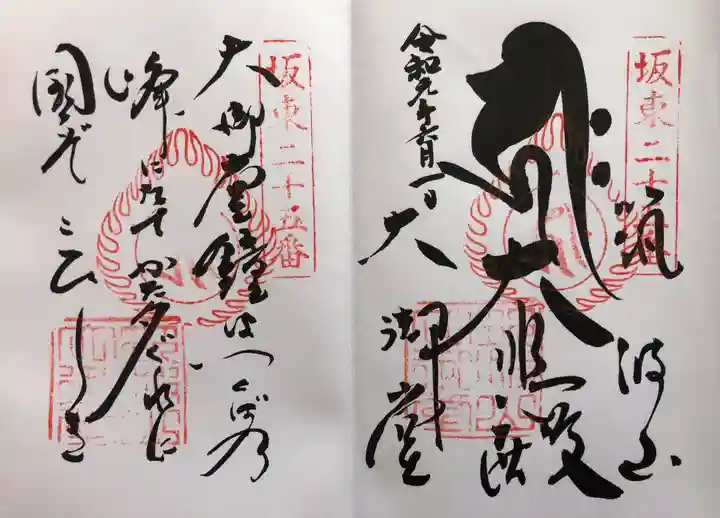 坂東二十五番
筑波山
大悲殿
大御堂
令和元年六月一日
坂東二十五番
大御堂鐘はつくば乃
峰にたてかた夕ぐれに
國ぞこひしき